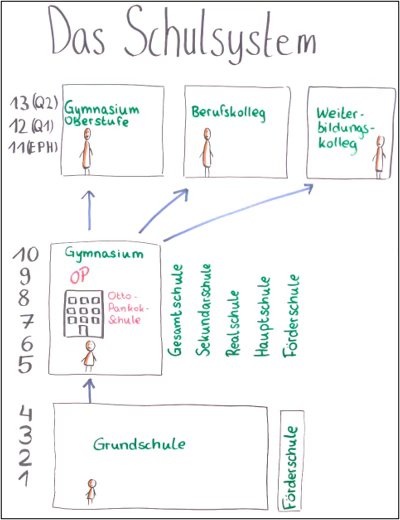 Das Schulsystem
13 (Q2)
12 (Q1)
11 (EPH)
Gymnasium
Oberstufe
Berufskolleg
Weiter-
bildungs-
kolleg
10
9
8
7
6
5
Gymnasium
OP
Otto-
Pankok-
Schule
Gesamtschule
Sekundarschule
Realschule
Hauptschule
Förderschule
4
3
2
1
Grundschule
Förderschule